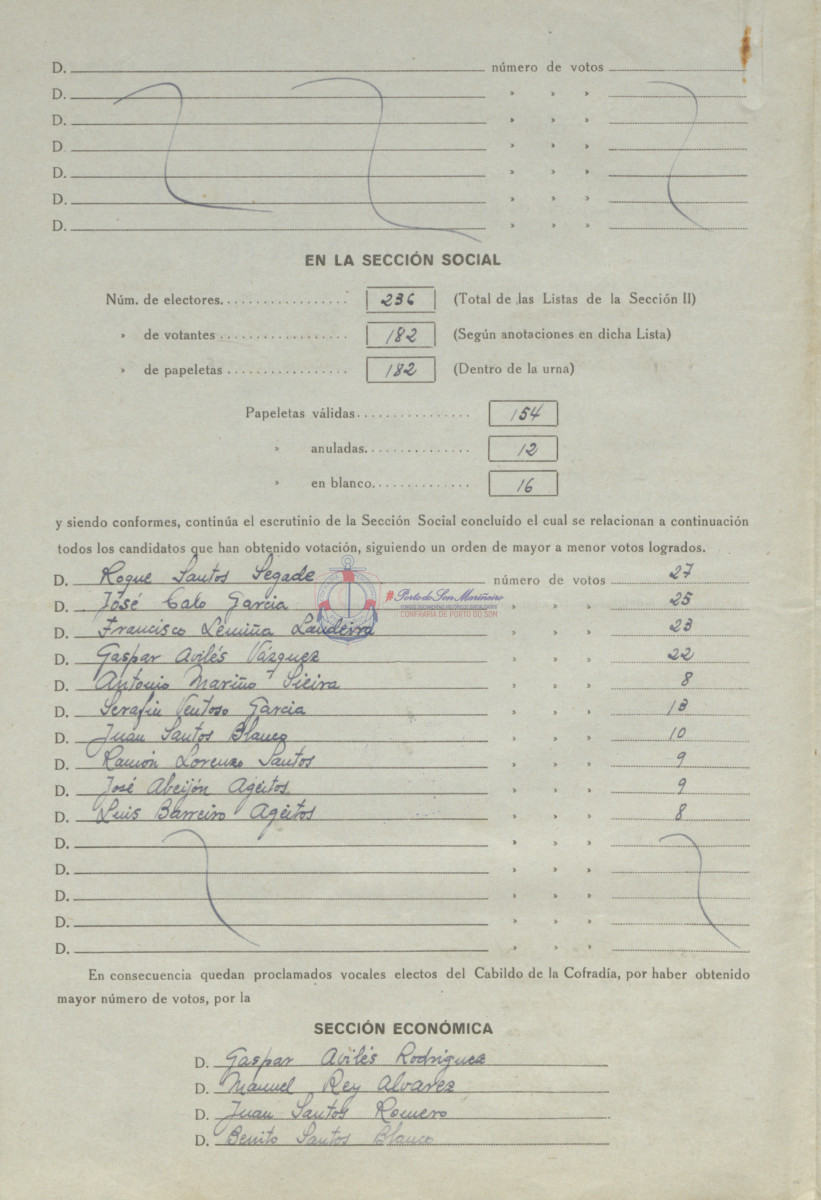 D. número de votos
D. » » »
D. » » »
D. » » »
D. » » »
D. » » »
D. » » »
EN LA SECCIÓN SOCIAL
Núm. de electores................. 236 (Total de las Listas de la Sección II)
» de votantes ................. 182 (Según anotaciones en dicha Lista)
» de papeletas ................ 182 (Dentro de la urna)
Papeletas válidas................ 154
» anuladas............... 12
» en blanco.............. 16
y siendo conformes, continúa el escrutinio de la Sección Social concluído el cual se relacionan a continuación
todos los candidatos que han obtenido votación, siguiendo un orden de mayor a menor votos logrados.
D. Roque Santos Segade número de votos 27
D. José Calo Garcia » » » 25
D. Francisco Lemiña Laudeira » » » 23
D. Gaspar Avilés Vázquez » » » 22
D. Antonio Mariño Sieira » » » 8
D. Serafin Ventoso Garcia » » » 13
D. Juan Santos Blanco » » » 10
D. Ramón Lorenzo Santos » » » 9
D. José Abeijón Ageitos » » » 9
D. Luis Barreiro Ageitos » » » 8
D. » » »
D. » » »
D. » » »
D. » » »
D. » » »
# Porto do Son Mariñeiro
CONFRARÍA DE PORTO DO SON
En consecuencia quedan proclamados vocales electos del Cabildo de la Cofradía, por haber obtenido
mayor número de votos, por la
SECCIÓN ECONÓMICA
D. Gaspar Avilés Rodriguez
D. Manuel Rey Alvarez
D. Juan Santos Romero
D. Benito Santos Blanco